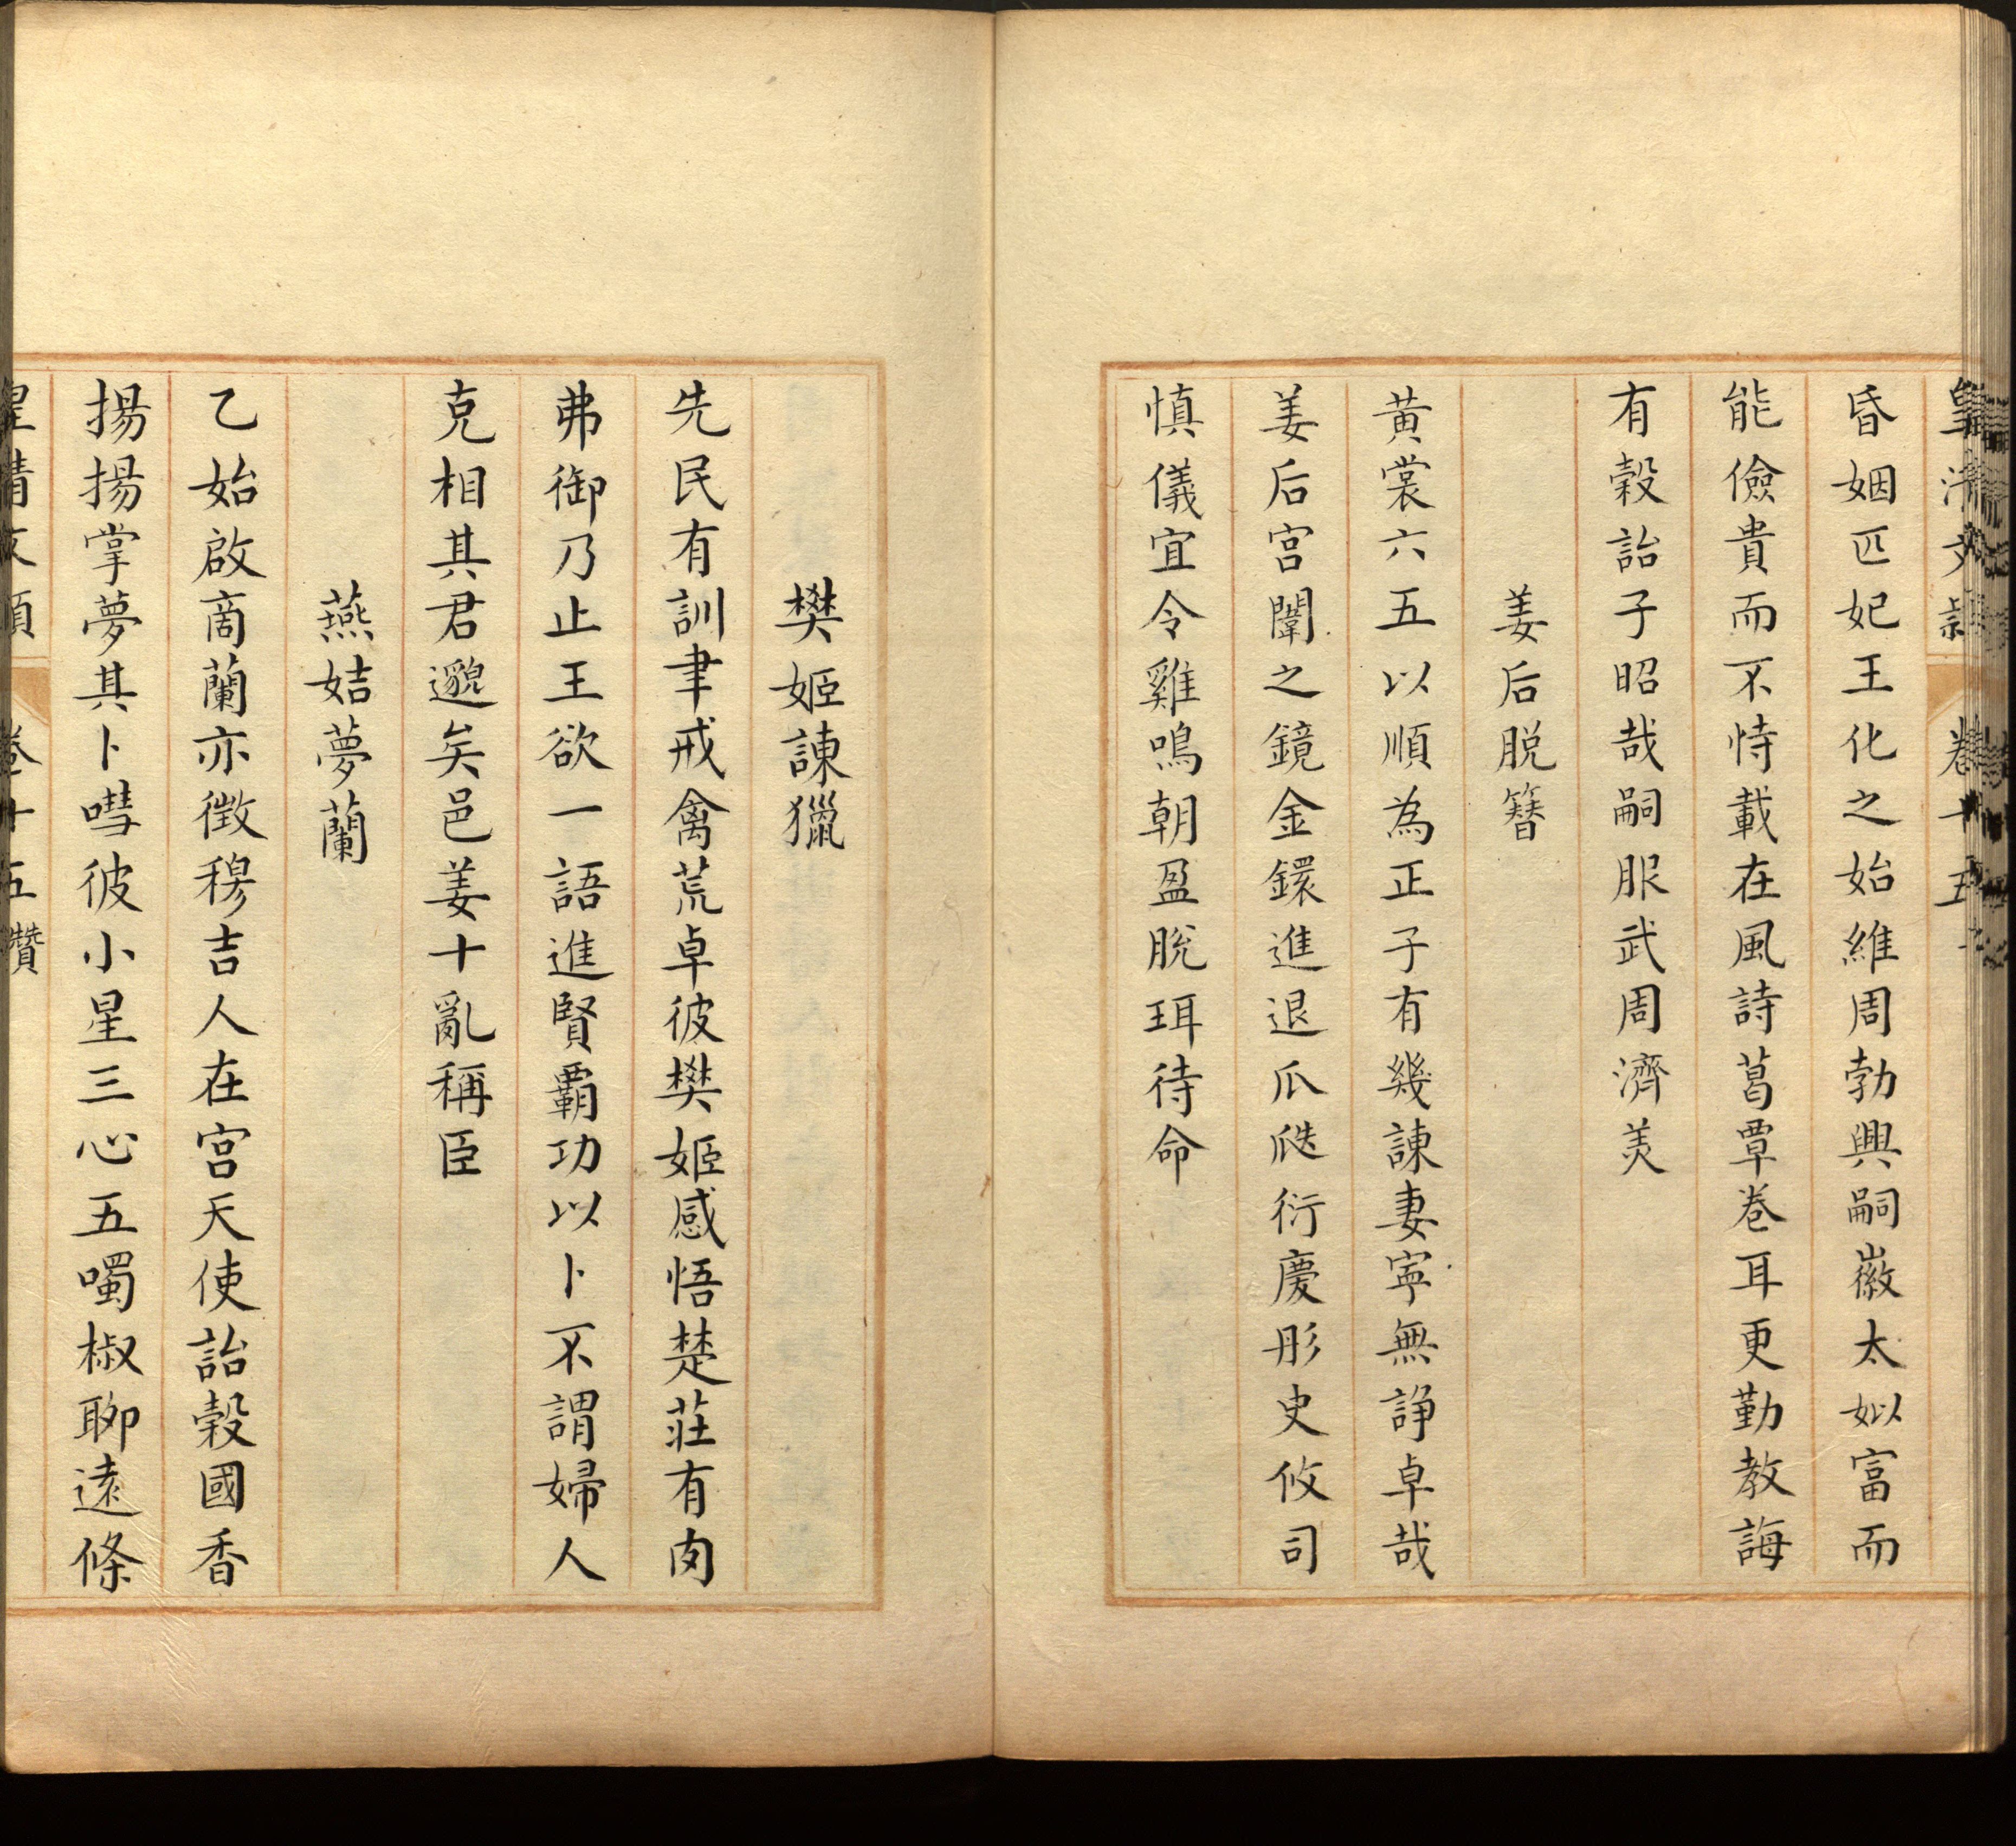 皇清文穎　卷十五
昏姻匹妃王化之始維周勃興嗣徽太姒富而
能儉貴而不恃載在風詩葛覃卷耳更勤教誨
有穀詒子昭哉嗣服武周濟美
姜后脱簪
黃裳六五以順為正子有幾諫妻寜無諍卓哉
姜后宫闈之鏡金鐶進退瓜瓞衍慶彤史攸司
慎儀宜令雞鳴朝盈脫珥待命
樊姬諫獵
先民有訓聿戒禽荒卓彼樊姬感悟楚莊有肉
弗御乃止王欲一語進賢覇功以卜不謂婦人
克相其君邈矣邑姜十亂稱臣
燕姞夢蘭
乙始啟商蘭亦徴穆吉人在宫天使詒榖國香
揚揚掌夢其卜嘒彼小星三心五噣椒聊遠條
皇清文穎　卷十五　贊